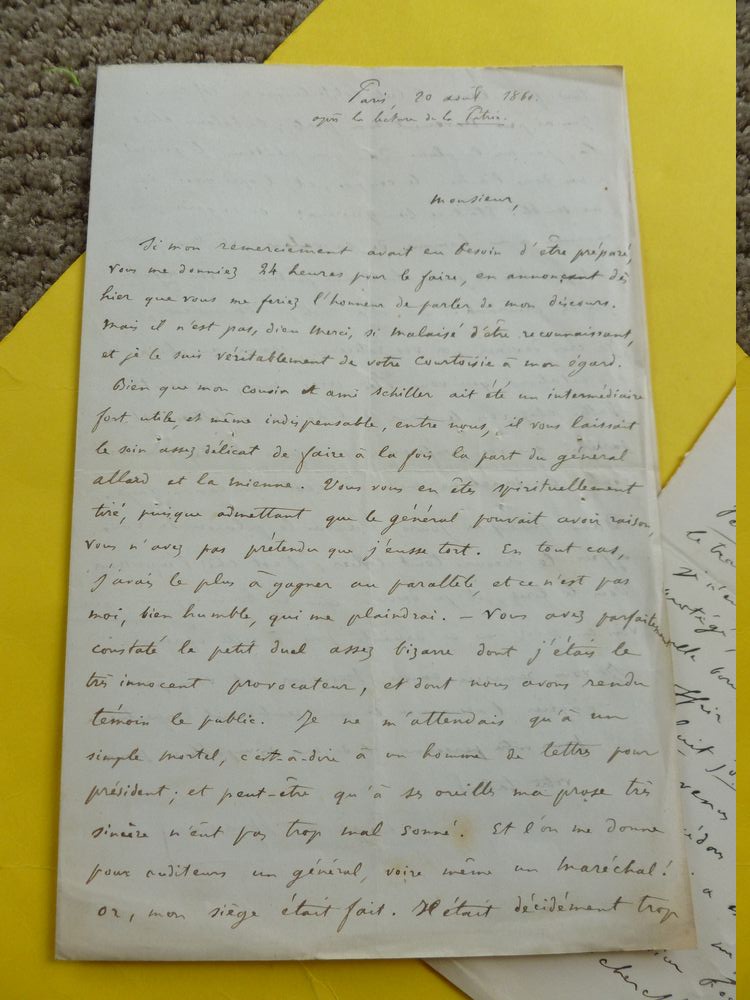 Paris, 20 août 1860.
après la lecture de la Patrie.
Monsieur,
Si mon remerciement avait eu besoin d'être préparé,
vous me donniez 24 heures pour le faire, en annonçant dès
hier que vous me feriez l'honneur de parler de mon discours.
Mais il n'est pas, dieu merci, si malaisé d'être reconnaissant,
et je le suis véritablement de votre courtoisie à mon égard.
Bien que mon cousin et ami Schiller ait été un intermédiaire
fort utile, et même indispensable, entre nous, il vous laissait
le soin assez délicat de faire à la fois la part du général
allard et la mienne. Vous vous en êtes spirituellement
tiré, puisque admettant que le général pouvait avoir raison,
vous n'avez pas prétendu que j'eusse tort. En tout cas,
j'avais le plus à gagner au parallèle, et ce n'est pas
moi, bien humble, qui me plaindrai. – Vous avez parfaitement
constaté le petit duel assez bizarre dont j'étais le
très innocent provocateur, et dont nous avons rendu
témoin le public. Je ne m'attendais qu'à un
simple mortel, c'est-à-dire à un homme de lettres pour
président; et peut-être qu'à ses oreilles ma prose très
sincère n'eût pas trop mal sonné. Et l'on me donne
pour auditeurs un général, voire même un maréchal!
or, mon siège était fait. Il était décidément trop